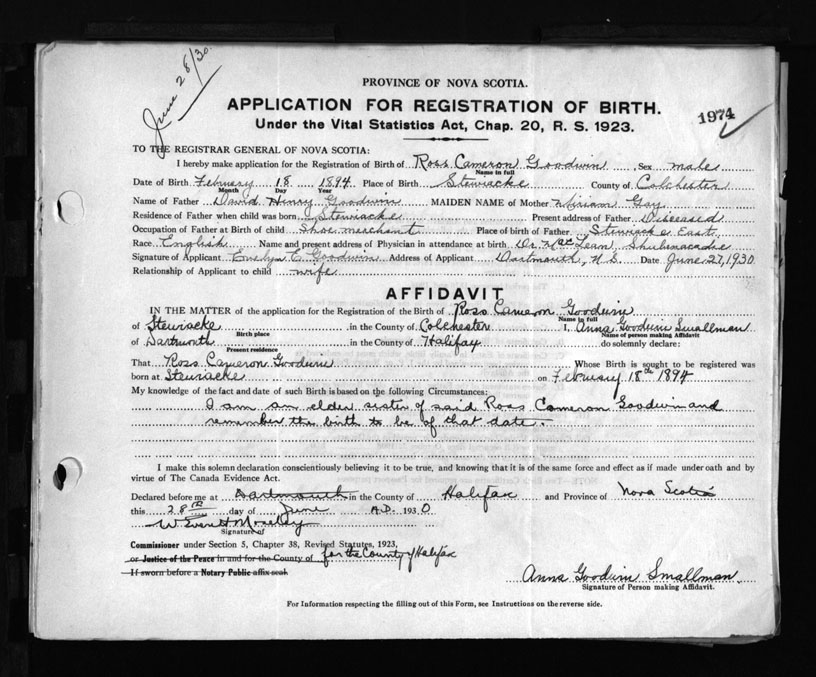 June 28/30
PROVINCE OF NOVA SCOTIA.
APPLICATION FOR REGISTRATION OF BIRTH.
1974
Under the Vital Statistics Act, Chap. 20, R. S. 1923.
TO THE REGISTRAR GENERAL OF NOVA SCOTIA:
I hereby make application for the Registration of Birth of Ross Cameron Goodwin, Sex male
Name in full
Date of Birth February 18 1894 Place of Birth Stewiacke County of Colchester
Month Day Year
Name of Father David Henry Goodwin MAIDEN NAME of Mother Miriam Gay
Residence of Father when child was born Stewiacke Present address of Father Diseased
Occupation of Father at Birth of child Shoe merchant Place of birth of Father Stewiacke East
Race English Name and present address of Physician in attendance at birth Dr. McLean, Shubenacadie
Signature of Applicant Evelyn E. Goodwin Address of Applicant Dartmouth, N.S. Date June 27, 1930
Relationship of Applicant to child wife
AFFIDAVIT
IN THE MATTER of the application for the Registration of the Birth of Ross Cameron Goodwin
Name in full
of Stewiacke in the County of Colchester I, Anna Goodwin Smallman
Birth place Name of person making Affidavit
of Dartmouth in the County of Halifax do solemnly declare:
Present residence
That Ross Cameron Goodwin Whose Birth is sought to be registered was
born at Stewiacke on February 18th 1894
My knowledge of the fact and date of such Birth is based on the following Circumstances:
I am an elder sister of said Ross Cameron Goodwin and
remember the birth to be of that date.
I make this solemn declaration conscientiously believing it to be true, and knowing that it is of the same force and effect as if made under oath and by
virtue of The Canada Evidence Act.
Declared before me at Dartmouth in the County of Halifax and Province of Nova Scotia
this 28th day of June A.D. 1930
W Everett Moseley
Signature of
Commissioner under Section 5, Chapter 38, Revised Statutes, 1923,
or Justice of the Peace in and for the County of for the County of Halifax
If sworn before a Notary Public affix seal
Anna Goodwin Smallman
Signature of Person making Affidavit.
For Information respecting the filling out of this Form, see Instructions on the reverse side.